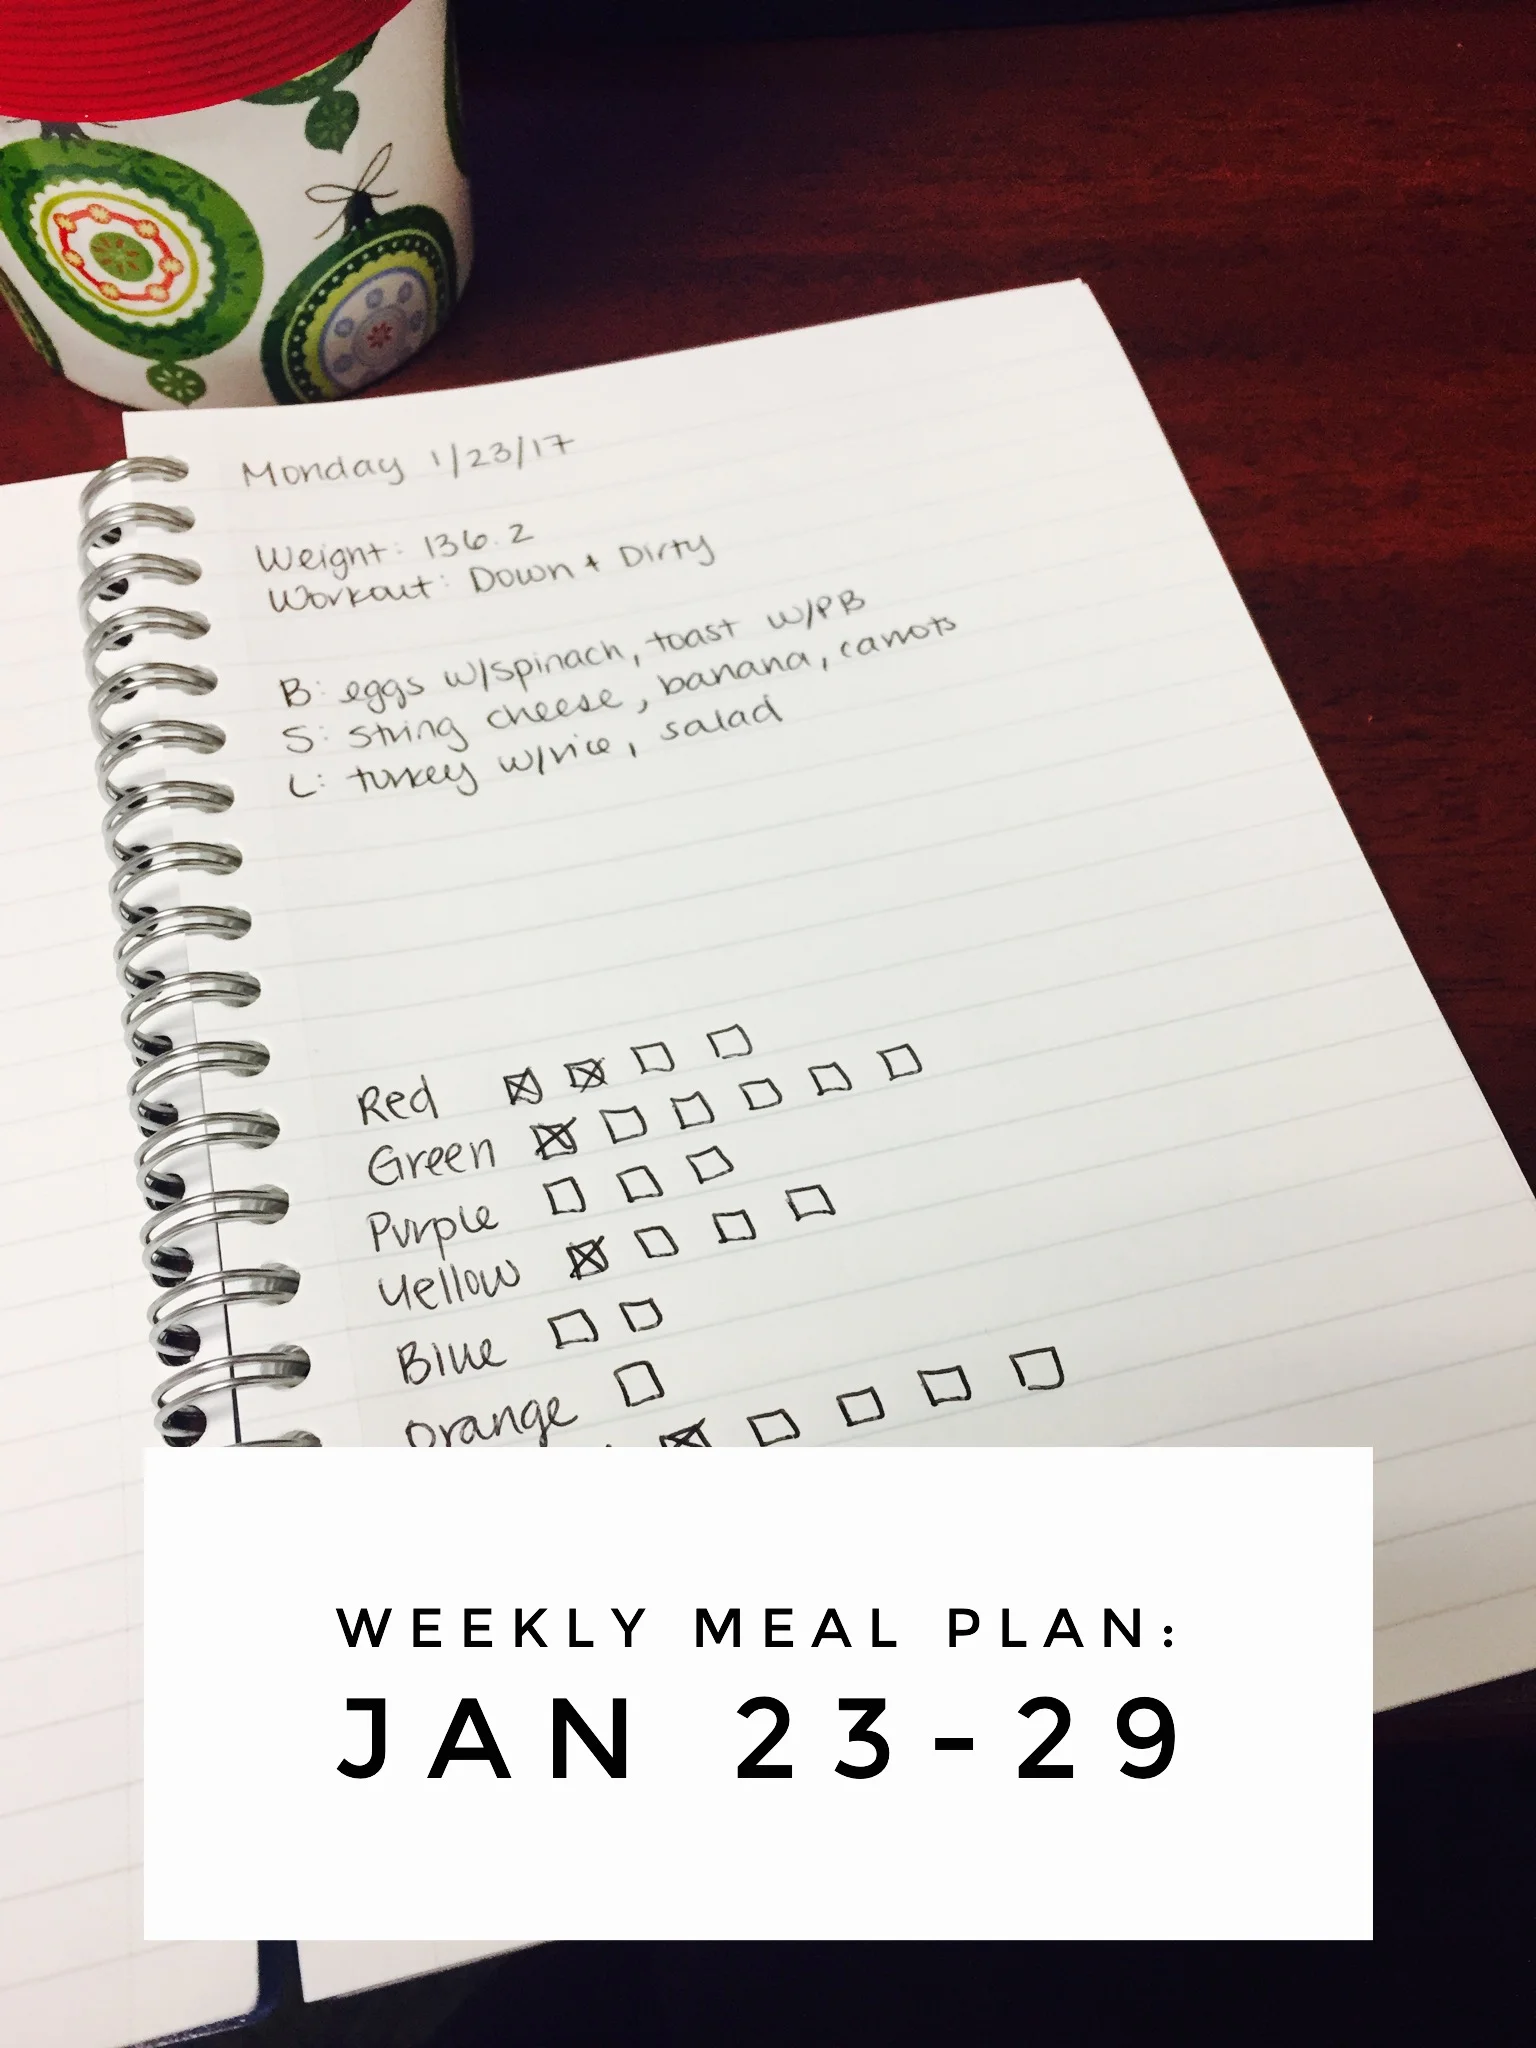 Monday 1/23/17
Weight: 136.2
Workout: Down + Dirty
B: eggs w/spinach, toast w/PB
S: string cheese, banana, carrots
L: turkey w/rice, salad
Red
Green
Purple
Yellow
Blue
Orange
WEEKLY MEAL PLAN:
JAN 23-29